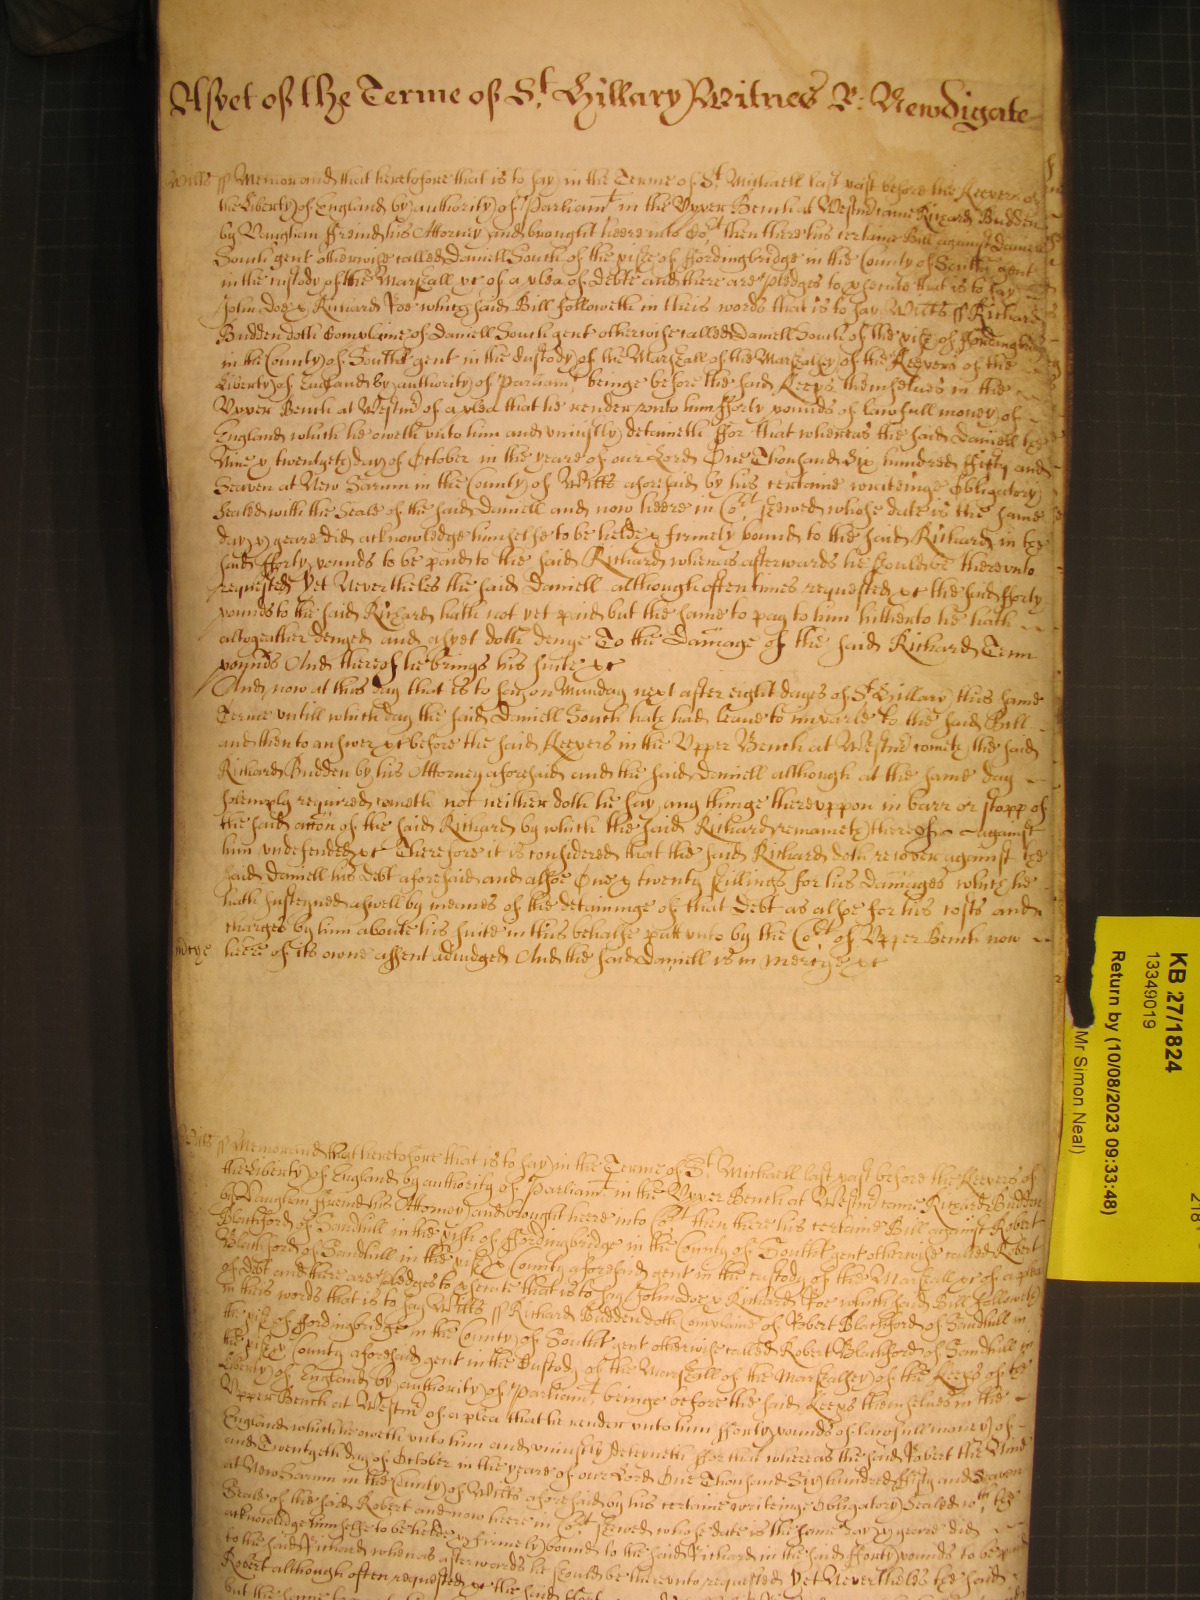 As yet of the Terme of St. Hillary Witnes R: Newdigate
Wilts ss Memorand that heretofore that is to say in the Terme of St. Michaell last past before the Keepers of
the Liberty of England by authority of Parliamt in the Upper Bench at Westm came Richard Budden
by Vaughan ffreind his Attorney and brought heere into Cort then there his certaine Bill against Daniell
South gent otherwise called Daniell South of the pish of ffordingbridge in the County of Southt gent
in the custody of the Marshall &c of a plea of Debte and there are Pledges to p'secute that is to say
John Doe & Richard Roe which said Bill followeth in theis words that is to say Wilts ss Richard
Budden doth Complaine of Daniell South gent otherwise called Daniell South of the pish of ffordingbridge
in the County of Southt gent in the Custody of the Marshall of the Marshalsey of the Keepers of the
Liberty of England by authority of Parliamt beinge before the said Keeps themselves in the
Upper Bench at Westm of a plea that he render unto him fforty pounds of lawfull money of
England which he oweth unto him and uniustly detaineth ffor that whereas the said Daniell the
Nine & twentyeth day of October in the yeare of our Lord One Thousand Six hundred ffifty and
Seaven at New Sarum in the County of Wilts aforesaid by his certaine writeinge Obligatory
Sealed with the Seale of the said Daniell and now heere in Cort shewed whose date is the same
day & yeare did acknowledge himselfe to be helde & firmely bound to the said Richard in the
said fforty pounds to be paid to the said Richard when as afterwards he should be thereunto
requested Yet Nevertheles the said Daniell although often times requested &c the said fforty
pounds to the said Richard hath not yet paid but the same to pay to him hitherto he hath
altogeather denyed and as yet doth denye To the Damage of the said Richard Tenn
pounds And thereof he brings his suite &c
And now at this day that is to say on Munday next after eight dayes of St. Hillary this same
Terme untill which day the said Daniell South hath had leave to imparle to the said Bill
and then to answer &c before the said Keepers in the Upper Bench at Westm cometh the said
Richard Budden by his Attorney aforesaid and the said Daniell although at the same day
solemply required cometh not neither doth he say any thinge thereuppon in barr or stopp of
the said accon of the said Richard by which the said Richard remaineth thereof against
him undefended &c Therefore it is considered that the said Richard doth recover against the
said Daniell his Debt aforesaid and alsoe One & twenty shillings for his damages which he
hath susteyned aswell by meanes of the detaininge of that Debt as alsoe for his costs and
charges by him aboute his suite in this behalfe putt unto by the Cort of Upper Bench now
mercye heere of its owne assent adiudged And the said Daniell is in mercye &c
Wilts ss Memorand that heretofore that is to say in the Terme of St. Michaell last past before the Keepers of
the Liberty of England by authority of Parliamt in the Upper Bench at Westm came Richard Budden
by Vaughan ffreind his Attorney and brought heere into Cort then there his certaine Bill against Robert
Blachford of Sandhill in the pish of ffordingbridge in the County of Southt gent otherwise called Robert
Blachford of Sandhill in the pish & County aforesaid gent in the custody of the Marshall &c of a plea
of Debt and there are Pledges to p'secute that is to say John Doe & Richard Roe which said Bill followeth
in theis words that is to say Wilts ss Richard Budden doth Complaine of Robert Blachford of Sandhill in
the pish of ffordingbridge in the County of Southt gent otherwise called Robert Blachford of Sandhill in
the pish & County aforesaid gent in the Custody of the Marshall of the Marshalsey of the Keeps of the
Liberty of England by authority of Parliamt beinge before the said Keeps themselves in the
Upper Bench at Westm of a plea that he render unto him fforty pounds of lawfull money of
England which he oweth unto him and uniustly deteyneth ffor that whereas the said Robert the Nine
and Twentyeth day of October in the yeare of our Lord One Thousand Six hundred ffifty and Seaven
at New Sarum in the County of Wilts aforesaid by his certaine writeinge Obligatory Sealed wth the
Seale of the said Robert and now heere in Cort shewed whose date is the same day & yeare did
acknowledge himselfe to be helde & firmely bound to the said Richard in the said fforty pounds to be paid
to the said Richard when as afterwards he should be thereunto requested Yet Nevertheles the said
Robert although often requested &c the said fforty
but the same to
KB 27/1824
13349019
Return by (10/08/2023 09:33:48)
Mr Simon Neal)